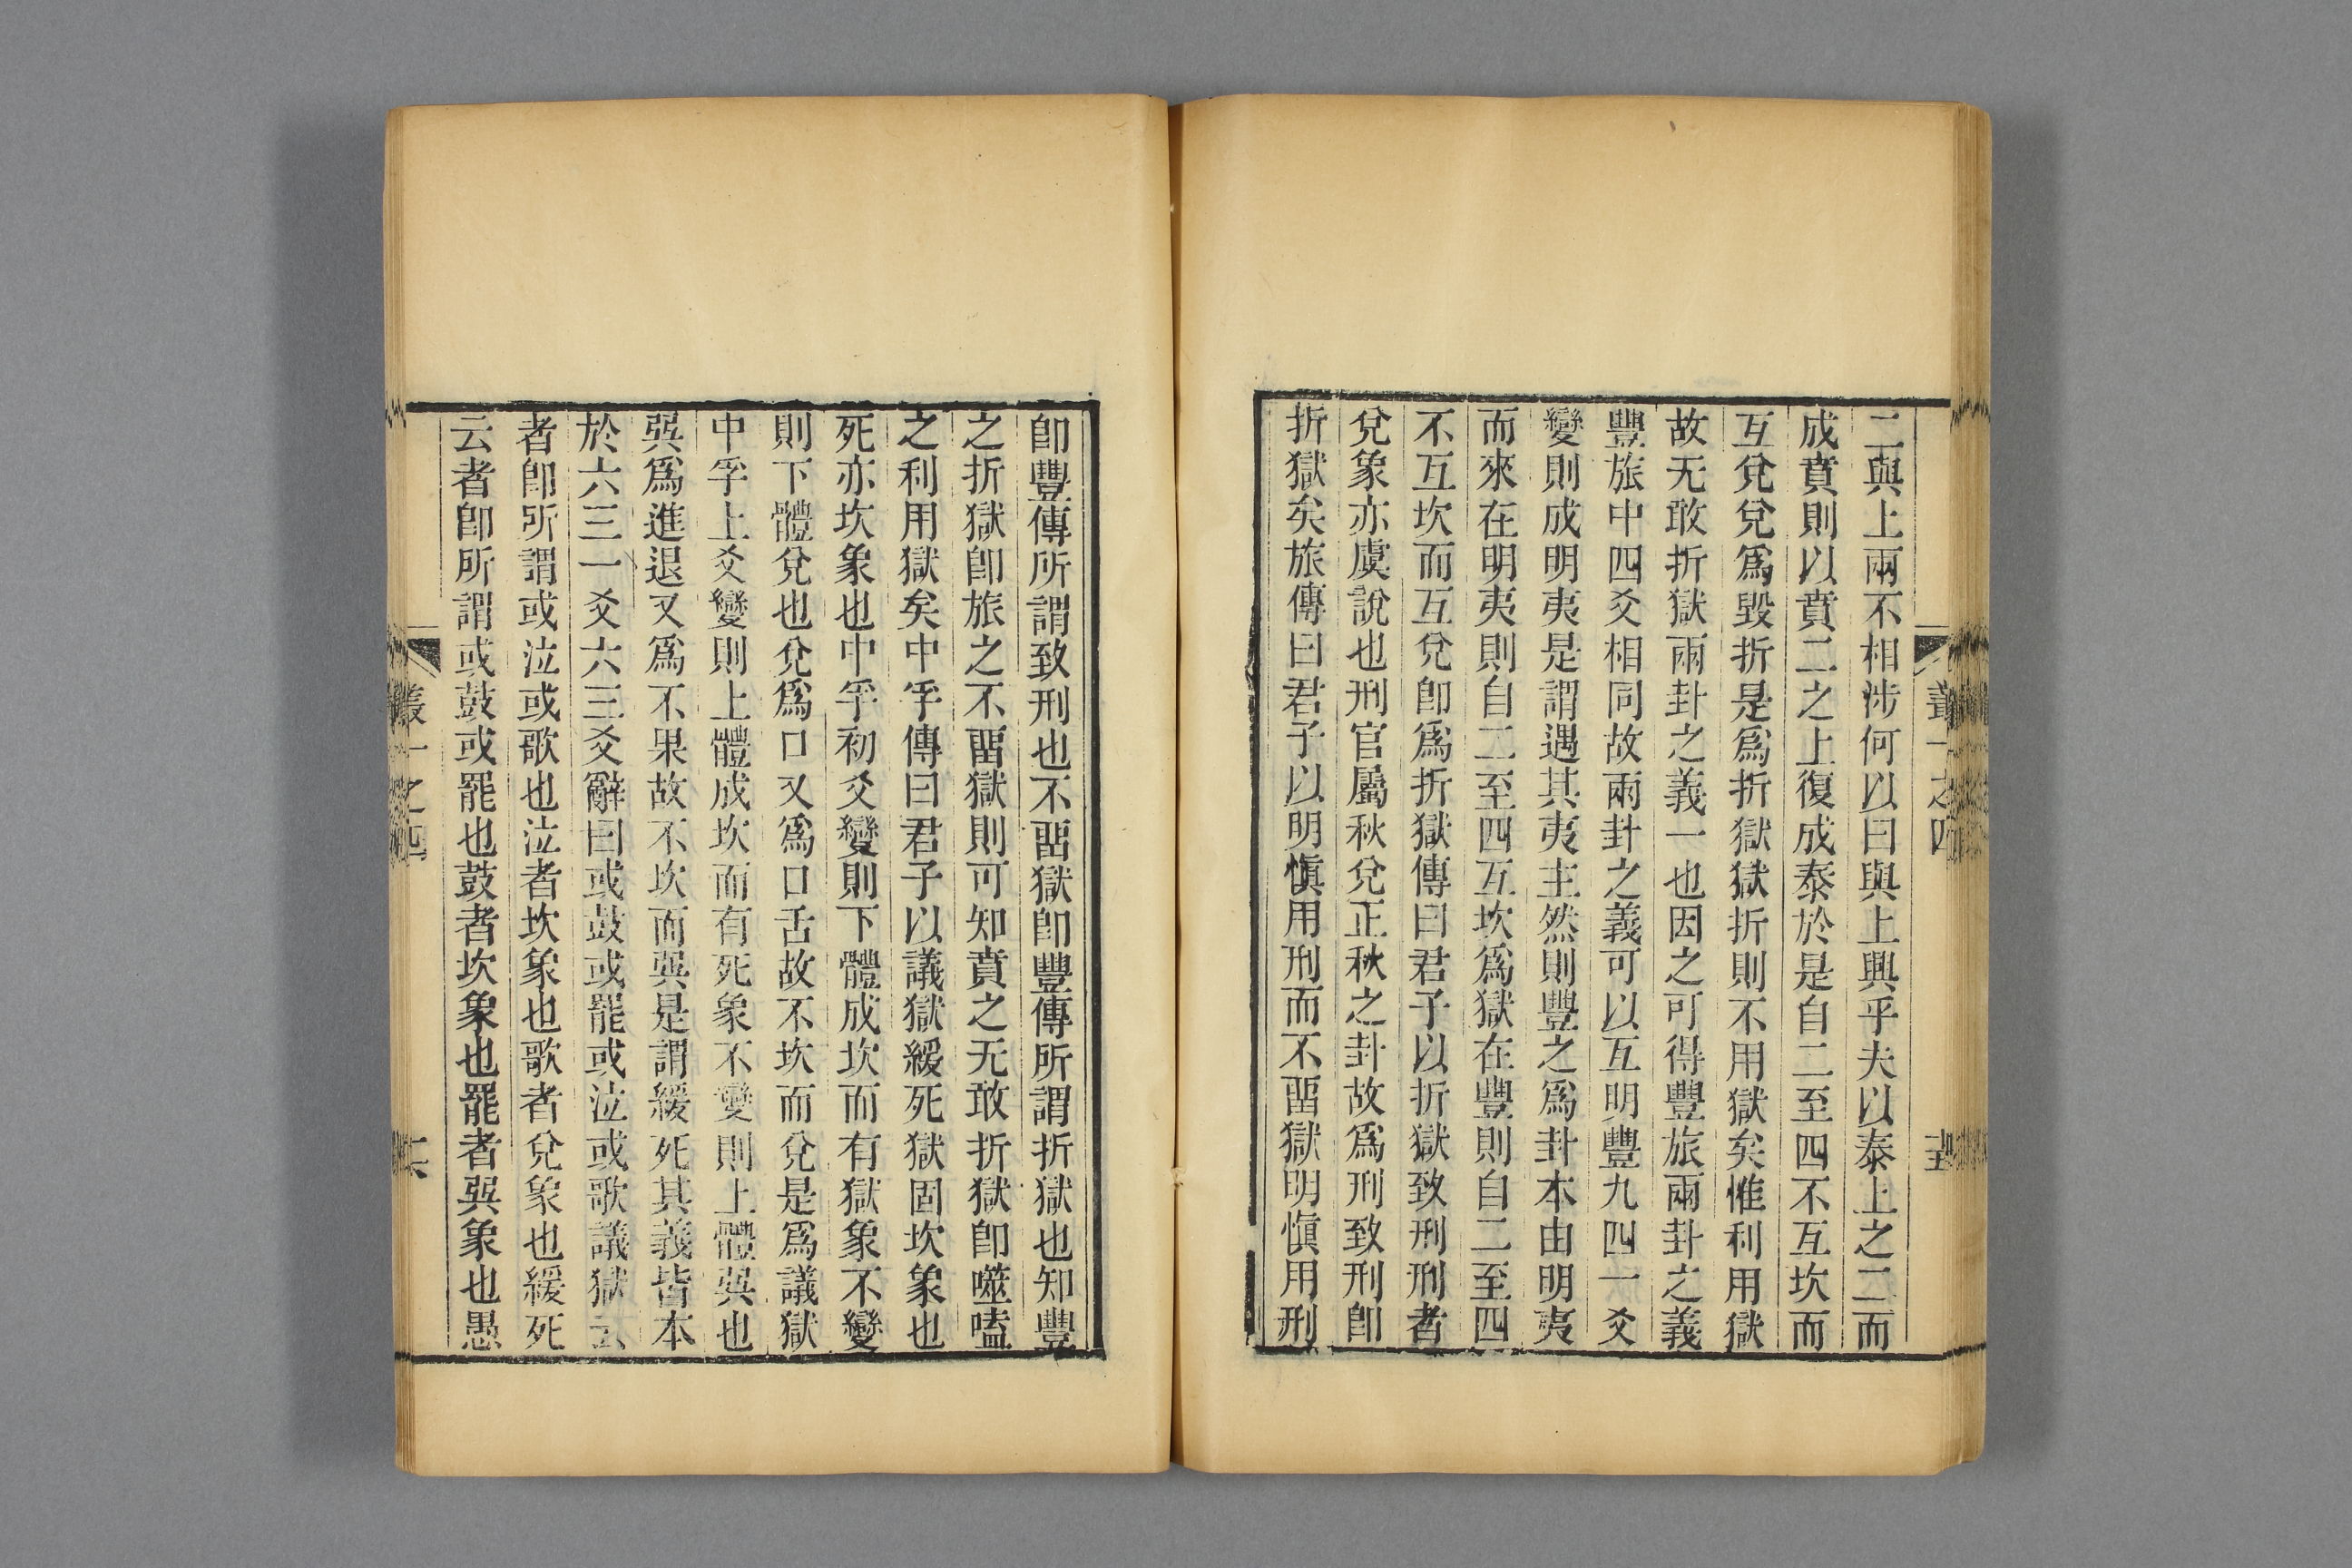 二與上兩不相涉何以曰與上興乎夫以泰上之二而
成賁則以賁二之上復成泰於是自二至四不互坎而
互兌兌爲毀折是爲折獄獄折則不用獄矣惟利用獄
故无敢折獄兩卦之義一也因之可得豐旅兩卦之義
豐旅中四爻相同故兩卦之義可以互明豐九四一爻
變則成明夷是謂遇其夷主然則豐之爲卦本由明夷
而來在明夷則自二至四互坎爲獄在豐則自二至四
不互坎而互兌卽爲折獄傳曰君子以折獄致刑刑者
兌象亦虞說也刑官屬秋兌正秋之卦故爲刑致刑卽
折獄矣旅傳曰君子以明愼用刑而不畱獄明愼用刑
卽豐傳所謂致刑也不畱獄卽豐傳所謂折獄也知豐
之折獄卽旅之不畱獄則可知賁之无敢折獄卽噬嗑
之利用獄矣中孚傳曰君子以議獄緩死獄固坎象也
死亦坎象也中孚初爻變則下體成坎而有獄象不變
則下體兌也兌爲口又爲口舌故不坎而兌是爲議獄
中孚上爻變則上體成坎而有死象不變則上體巽也
巽爲進退又爲不果故不坎而巽是謂緩死其義皆本
於六三一爻六三爻辭曰或鼓或罷或泣或歌議獄云
者卽所謂或泣或歌也泣者坎象也歌者兌象也緩死
云者卽所謂或鼓或罷也鼓者坎象也罷者巽象也愚
叢一之四